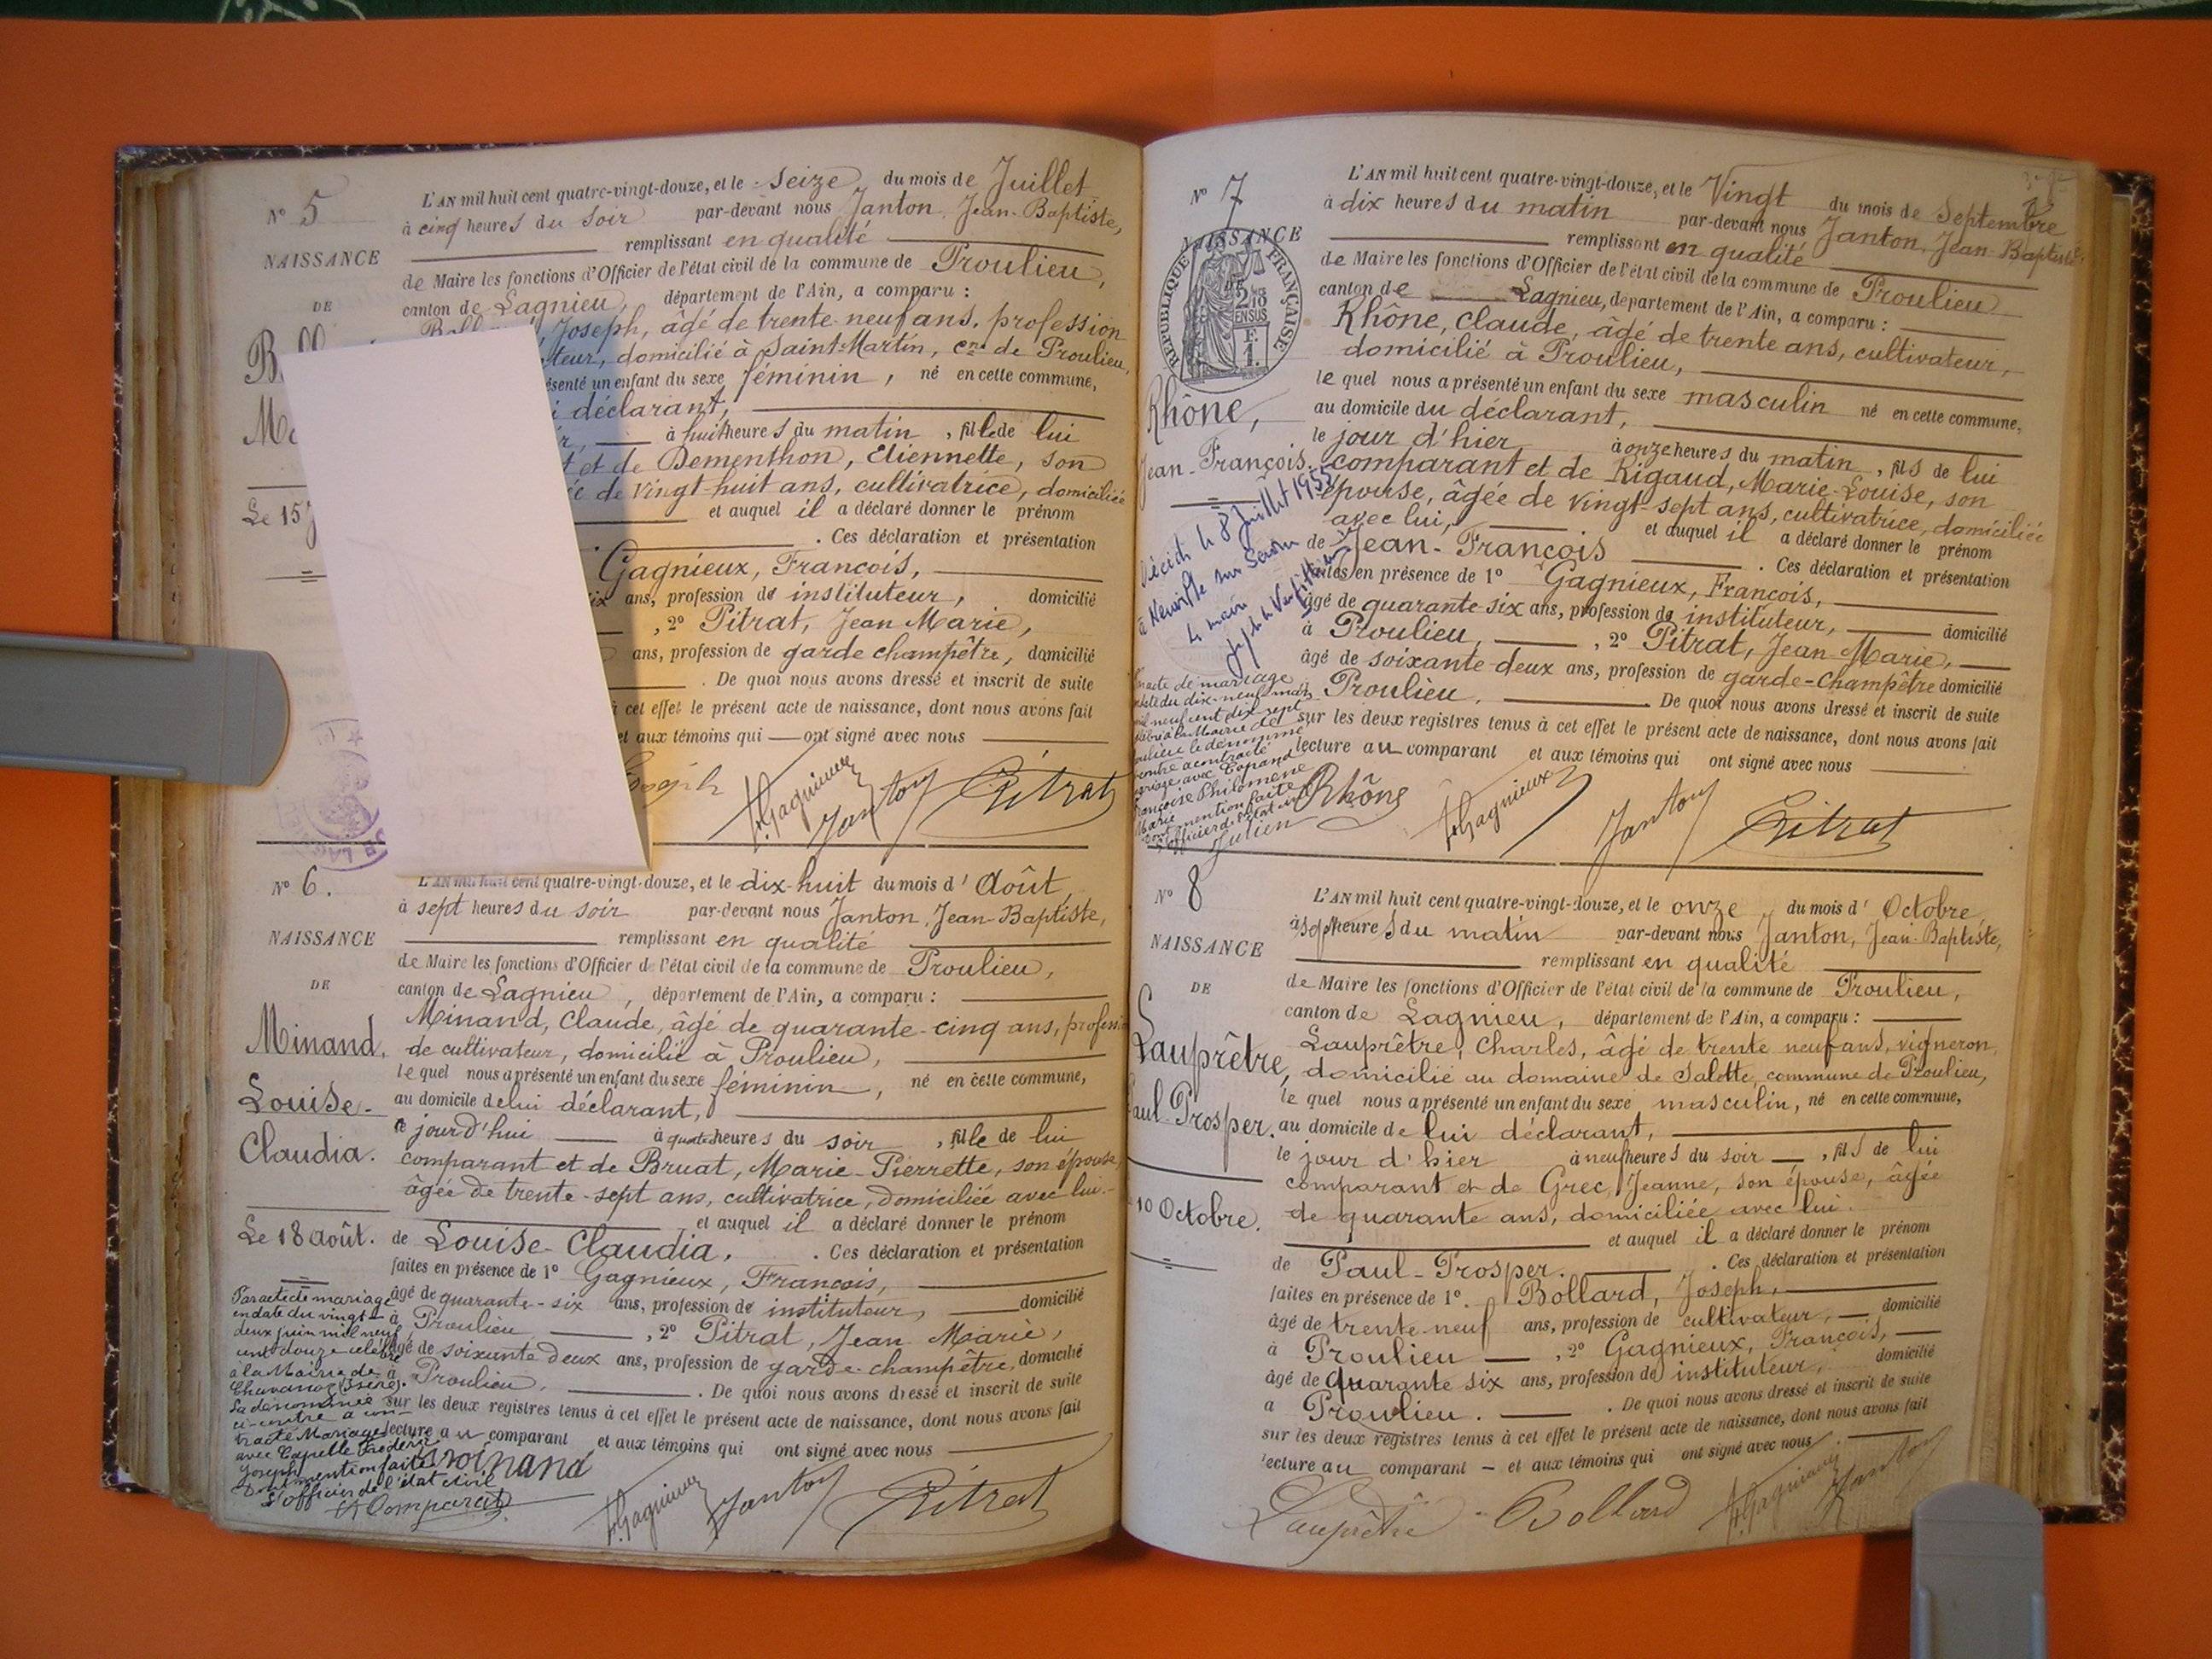 N° 5
NAISSANCE
DE
Le 15
L'AN mil huit cent quatre-vingt-douze, et le seize du mois de Juillet
à cinq heures du soir par-devant nous Janton, Jean-Baptiste,
remplissant en qualité
de Maire les fonctions d'Officier de l'état civil de la commune de Proulieu,
canton de Lagnieu, département de l'Ain, a comparu :
Joseph, âgé de trente-neuf ans, profession
teur, domicilié à Saint-Martin, cne de Proulieu,
ésenté un enfant du sexe féminin, né en cette commune,
i déclarant,
à huit heures du matin, fille de lui
t et de Dementhon, Etiennette, son
ée de vingt-huit ans, cultivatrice, domiciliée
et auquel il a déclaré donner le prénom
. Ces déclaration et présentation
Gagnieux, François,
ix ans, profession de instituteur, domicilié
, 2° Pitrat, Jean Marie,
ans, profession de garde champêtre, domicilié
. De quoi nous avons dressé et inscrit de suite
à cet effet le présent acte de naissance, dont nous avons fait
et aux témoins qui ont signé avec nous
Joseph F. Gagnieux Janton Pitrat
N° 6.
NAISSANCE
DE
Minand,
Louise-
Claudia.
Le 18 août.
L'AN mil huit cent quatre-vingt-douze, et le dix-huit du mois d'Août,
à sept heures du soir par-devant nous Janton, Jean-Baptiste,
remplissant en qualité
de Maire les fonctions d'Officier de l'état civil de la commune de Proulieu,
canton de Lagnieu, département de l'Ain, a comparu :
Minand, Claude, âgé de quarante-cinq ans, professi
de cultivateur, domicilié à Proulieu,
lequel nous a présenté un enfant du sexe féminin, né en cette commune,
au domicile de lui déclarant,
ce jourd'hui à quatre heures du soir, fille de lui
comparant et de Bruat, Marie-Pierrette, son épouse,
âgée de trente-sept ans, cultivatrice, domiciliée avec lui.-
et auquel il a déclaré donner le prénom
de Louise-Claudia. . Ces déclaration et présentation
faites en présence de 1° Gagnieux, François,
âgé de quarante-six ans, profession de instituteur, domicilié
à Proulieu , 2° Pitrat, Jean Marie,
âgé de soixante deux ans, profession de garde-champêtre, domicilié
à Proulieu, . De quoi nous avons dressé et inscrit de suite
sur les deux registres tenus à cet effet le présent acte de naissance, dont nous avons fait
lecture au comparant et aux témoins qui ont signé avec nous
Minand F. Gagnieux Janton Pitrat
Par acte de mariage
en date du vingt-
deux juin mil neuf
cent douze célébré
à la Mairie de
Chavanoz (Isère).
La dénommée
ci-contre a con-
tracté Mariage
avec Capelle Frédéric
Joseph
Dont mention faite
L'officier de l'état civil
Comparat
N° 7
NAISSANCE
DE
RÉPUBLIQUE FRANÇAISE
2/10 EN SUS
F. 1.
Rhône,
Jean-François.
Décédé le 8 Juillet 1955
à Neuville sur Saône
le maire
Par acte de mariage
en date du dix-neuf mai
mil neuf cent dix sept
célébré à la Mairie de
Proulieu le dénommé
ci-contre a contracté
mariage avec
Françoise Philomène
Marie
Dont mention faite
L'officier de l'état civil
Julien
L'AN mil huit cent quatre-vingt-douze, et le Vingt du mois de Septembre
à dix heures du matin par-devant nous Janton, Jean-Baptiste,
remplissant en qualité
de Maire les fonctions d'Officier de l'état civil de la commune de Proulieu
canton de Lagnieu, département de l'Ain, a comparu :
Rhône, Claude, âgé de trente ans, cultivateur,
domicilié à Proulieu,
lequel nous a présenté un enfant du sexe masculin né en cette commune,
au domicile du déclarant,
le jour d'hier à onze heures du matin, fils de lui
comparant et de Rigaud, Marie-Louise, son
épouse, âgée de vingt-sept ans, cultivatrice, domiciliée
avec lui, et auquel il a déclaré donner le prénom
de Jean-François . Ces déclaration et présentation
faites en présence de 1° Gagnieux, François,
âgé de quarante-six ans, profession de instituteur, domicilié
à Proulieu, , 2° Pitrat, Jean Marie,
âgé de soixante-deux ans, profession de garde-champêtre domicilié
à Proulieu. . De quoi nous avons dressé et inscrit de suite
sur les deux registres tenus à cet effet le présent acte de naissance, dont nous avons fait
lecture au comparant et aux témoins qui ont signé avec nous
Rhône F. Gagnieux Janton Pitrat
N° 8
NAISSANCE
DE
Lauprêtre,
Paul-Prosper.
10 Octobre.
L'AN mil huit cent quatre-vingt-douze, et le onze du mois d'Octobre
à sept heures du matin par-devant nous Janton, Jean-Baptiste,
remplissant en qualité
de Maire les fonctions d'Officier de l'état civil de la commune de Proulieu,
canton de Lagnieu, département de l'Ain, a comparu :
Lauprêtre, Charles, âgé de trente neuf ans, vigneron,
domicilié au domaine de Salette, commune de Proulieu,
lequel nous a présenté un enfant du sexe masculin, né en cette commune,
au domicile de lui déclarant,
le jour d'hier à neuf heures du soir, fils de lui
comparant et de Grec, Jeanne, son épouse, âgée
de quarante ans, domiciliée avec lui.
et auquel il a déclaré donner le prénom
de Paul-Prosper. . Ces déclaration et présentation
faites en présence de 1°. Bollard, Joseph,
âgé de trente-neuf ans, profession de cultivateur, domicilié
à Proulieu , 2° Gagnieux, François,
âgé de quarante six ans, profession de instituteur, domicilié
a Proulieu. . De quoi nous avons dressé et inscrit de suite
sur les deux registres tenus à cet effet le présent acte de naissance, dont nous avons fait
lecture au comparant – et aux témoins qui ont signé avec nous
Lauprêtre Bollard F. Gagnieux Janton